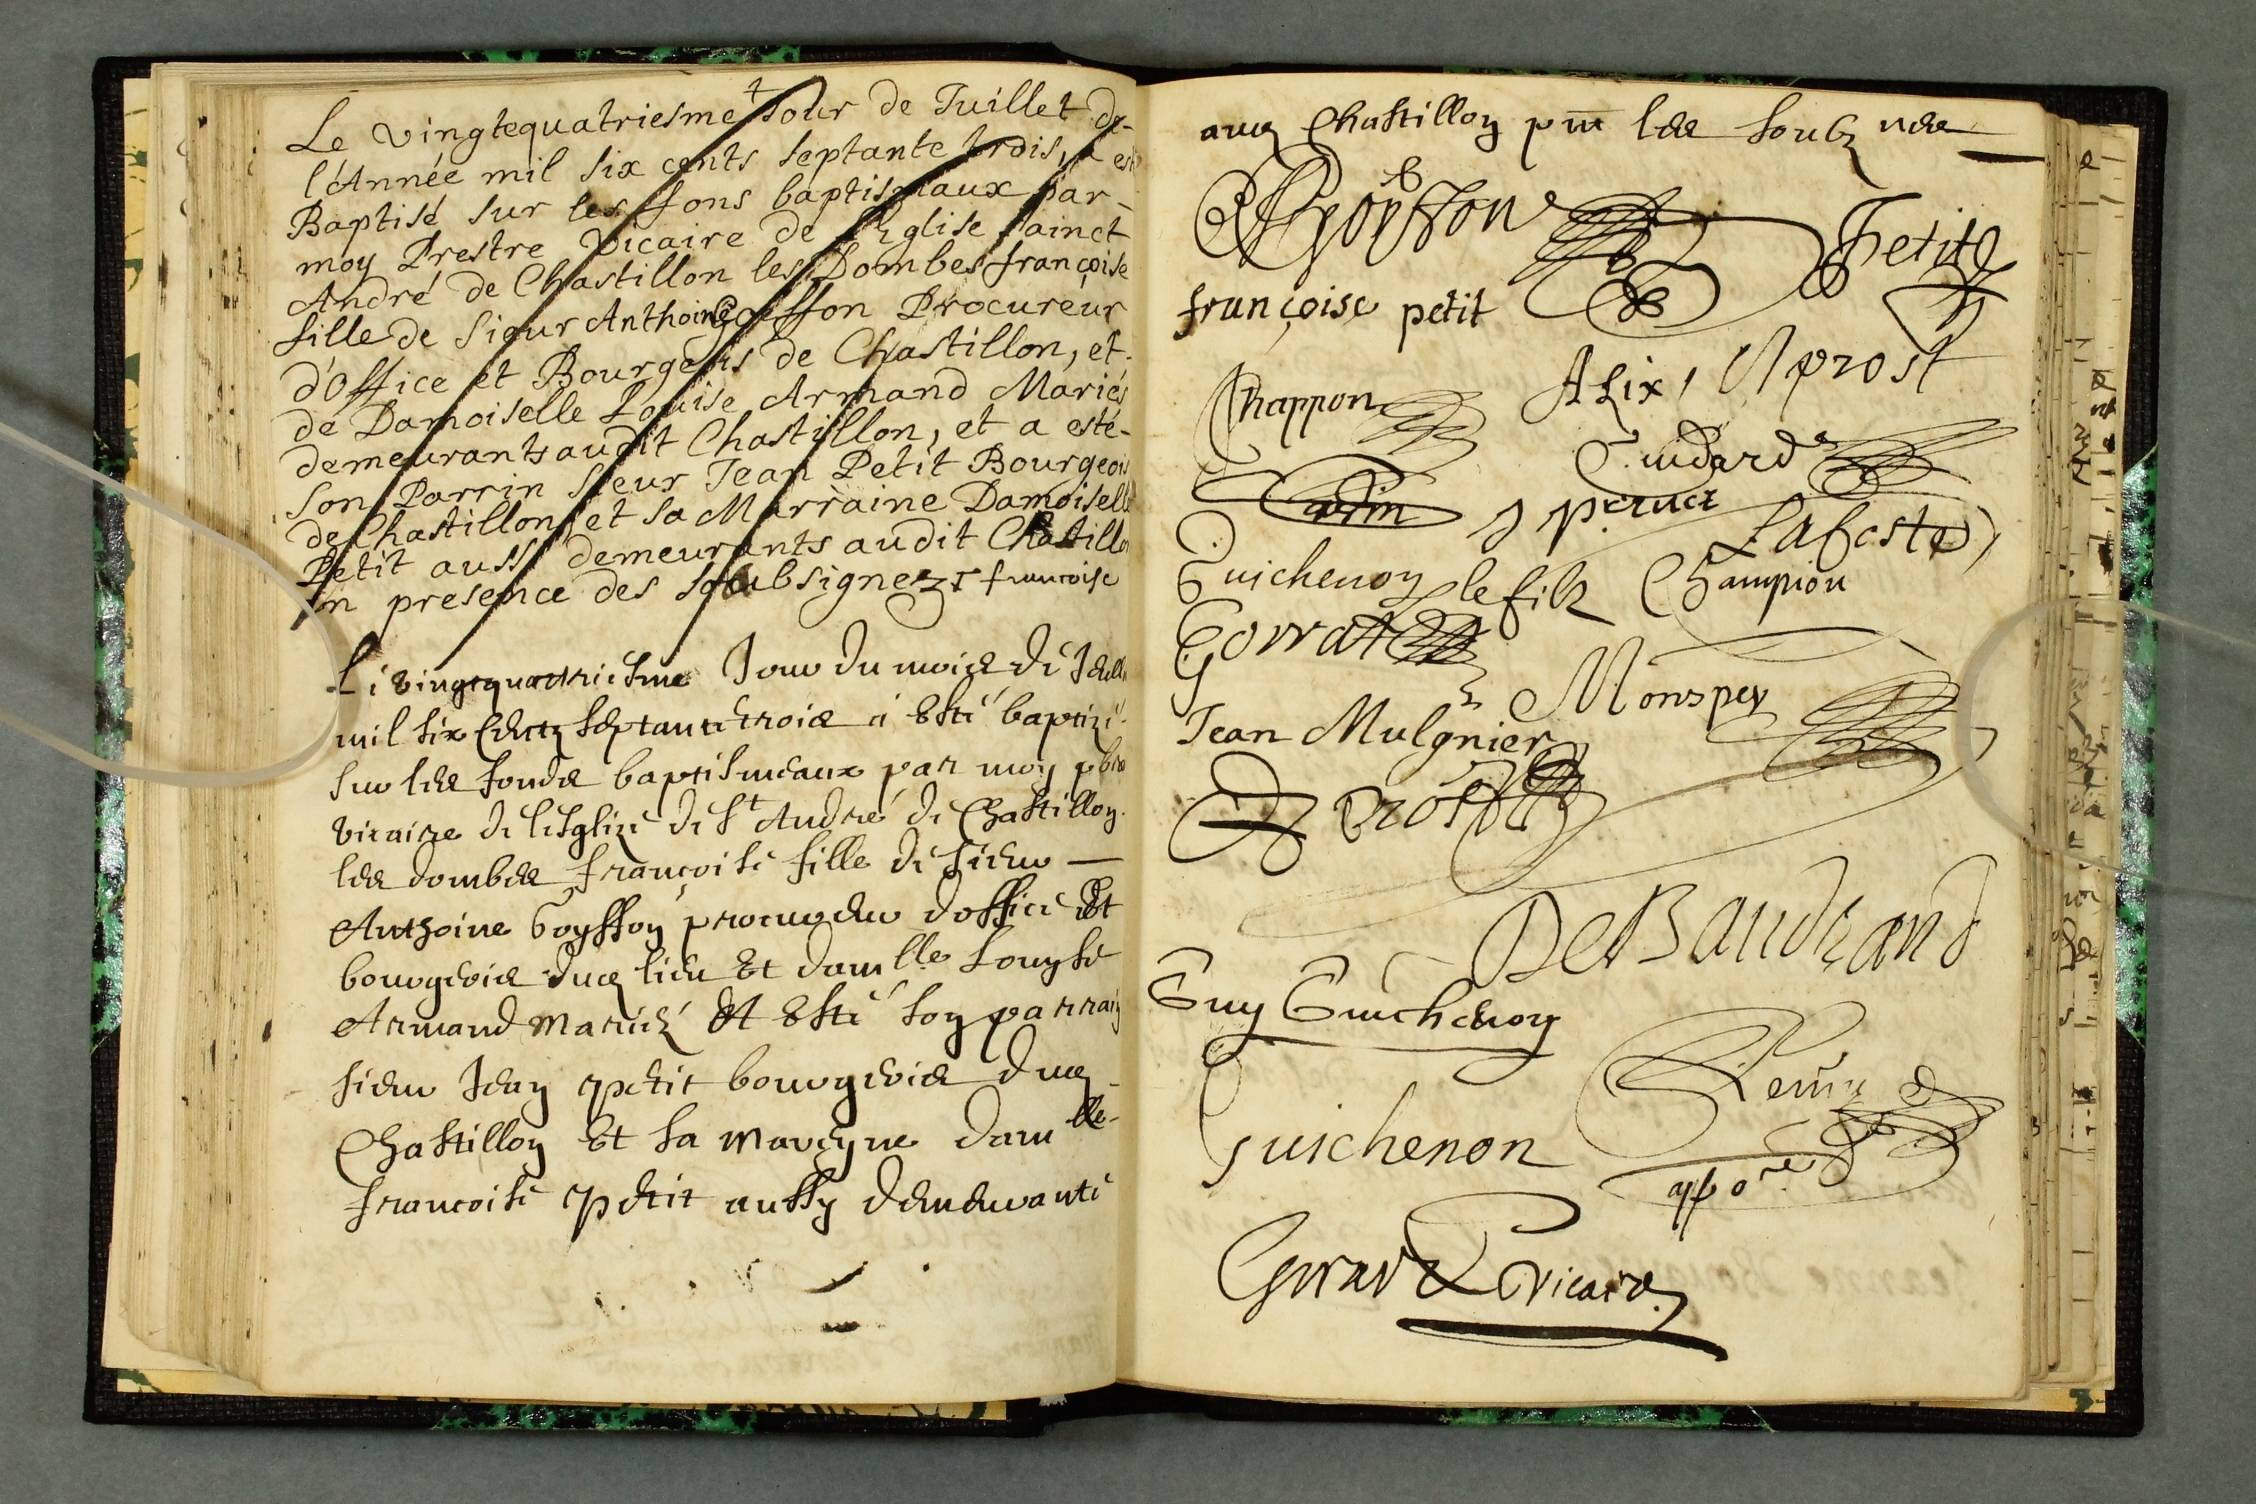 Le vingtequatriesme Jour de Juillet de-
l'Année mil six cents septante trois, a esté
Baptisé sur les fons baptismaux par-
moy Prestre Vicaire de l'Eglise sainct
André de Chastillon les Dombes françoise
fille de Sieur Anthoine Goeffon Procureur
d'Office et Bourgeois de Chastillon, et-
de Damoiselle Louise Armand Mariés
demeurants audit Chastillon, et a esté-
son Parrin Sieur Jean Petit Bourgeois
de Chastillon, et sa Marraine Damoiselle
Petit aussi demeurants audit Chastillon
En presence des soubsignez françoise
Le vingtequattriesme Jour du mois de Juillet
mil six centz septante trois a esté baptizé
sur les fonds baptismeaux par moy pbre
vicaire de lesglize de St André de Chastillon
les dombes françoise fille de sieur —
Anthoine Goyffon procureur doffice Et
bourgeois dud lieu Et damlle Louyse
Armand Mariéz Et esté son parrain
sieur Jean petit bourgeois dud
Chastillon Et sa mareyne damlle
francoise petit aussy demeurante
aud Chastillon pnt les soubz nes
Goyffon
Petit
françoise petit
Chappon
Alix, Uprost
Guidard
J peruet
Lafeste
Guichenon le filz
Champion
Gorrat
Monspey
Jean Mulgnier
Prost
DeBaudrand
Guy Guichenon
Guichenon
apore
Girard vicaire